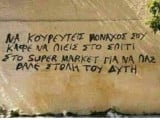 ΝΑ ΚΟΥΡΕΥΤΕΙΣ ΜΟΝΑΧΟΣ ΣΟΥ
ΚΑΦΕ ΝΑ ΠΙΕΙΣ ΣΤΟ ΣΠΙΤΙ
ΣΤΟ SUPER MARKET ΓΙΑ ΝΑ ΠΑΣ
ΒΑΛΕ ΣΤΟΛΗ ΤΟΥ ΔΥΤΗ